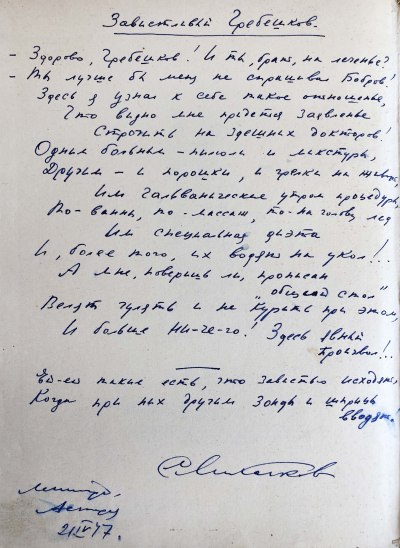 Завистливый Гребешков.
– Здорово, Гребешков! И ты, брат, на леченье?
– Ты лучше бы меня не спрашивал Бобров!
Здесь я узнал к себе такое отношенье,
Что видно мне придется заявленье
Строчить на здешних докторов!
Одним больным – пилюли и микстуры,
Другим – и порошки, и грелки на живот,
Им гальванические утром процедуры,
То – ванны, то – массаж, то – на голову лед
Им специальная диэта
И, более того, их водят на укол!..
А мне, поверишь ли, прописан
"общий стол"
Велят гулять и не курить при этом,
И больше ни-че-го! Здесь явный
произвол!..
Ей-ей такие есть, что завистью исходят,
Когда при них другим зонды и шприцы
вводят!
С Михалков
21 IV 47.